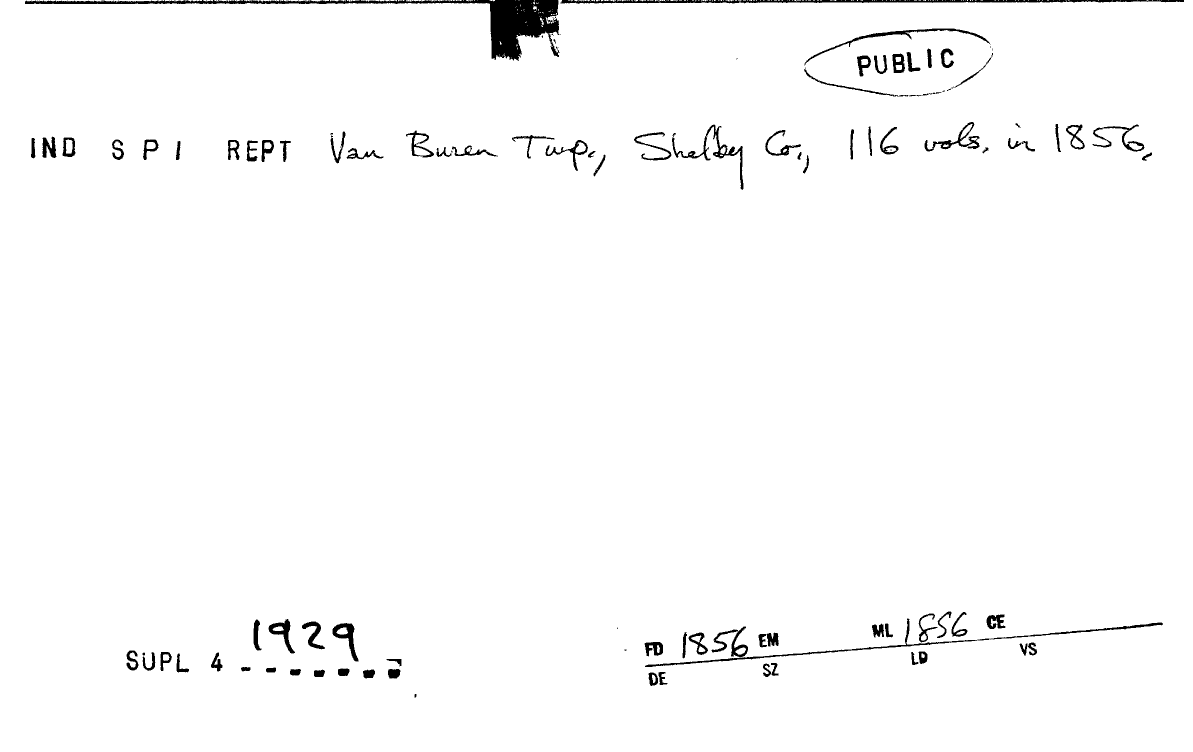 PUBLIC
IND S P I REPT Van Buren Twp., Shelby Co., 116 vols. in 1856.
1929
SUPL 4 - - - - - - -
FD 1856 EM ML 1856 CE
DE SZ LD VS